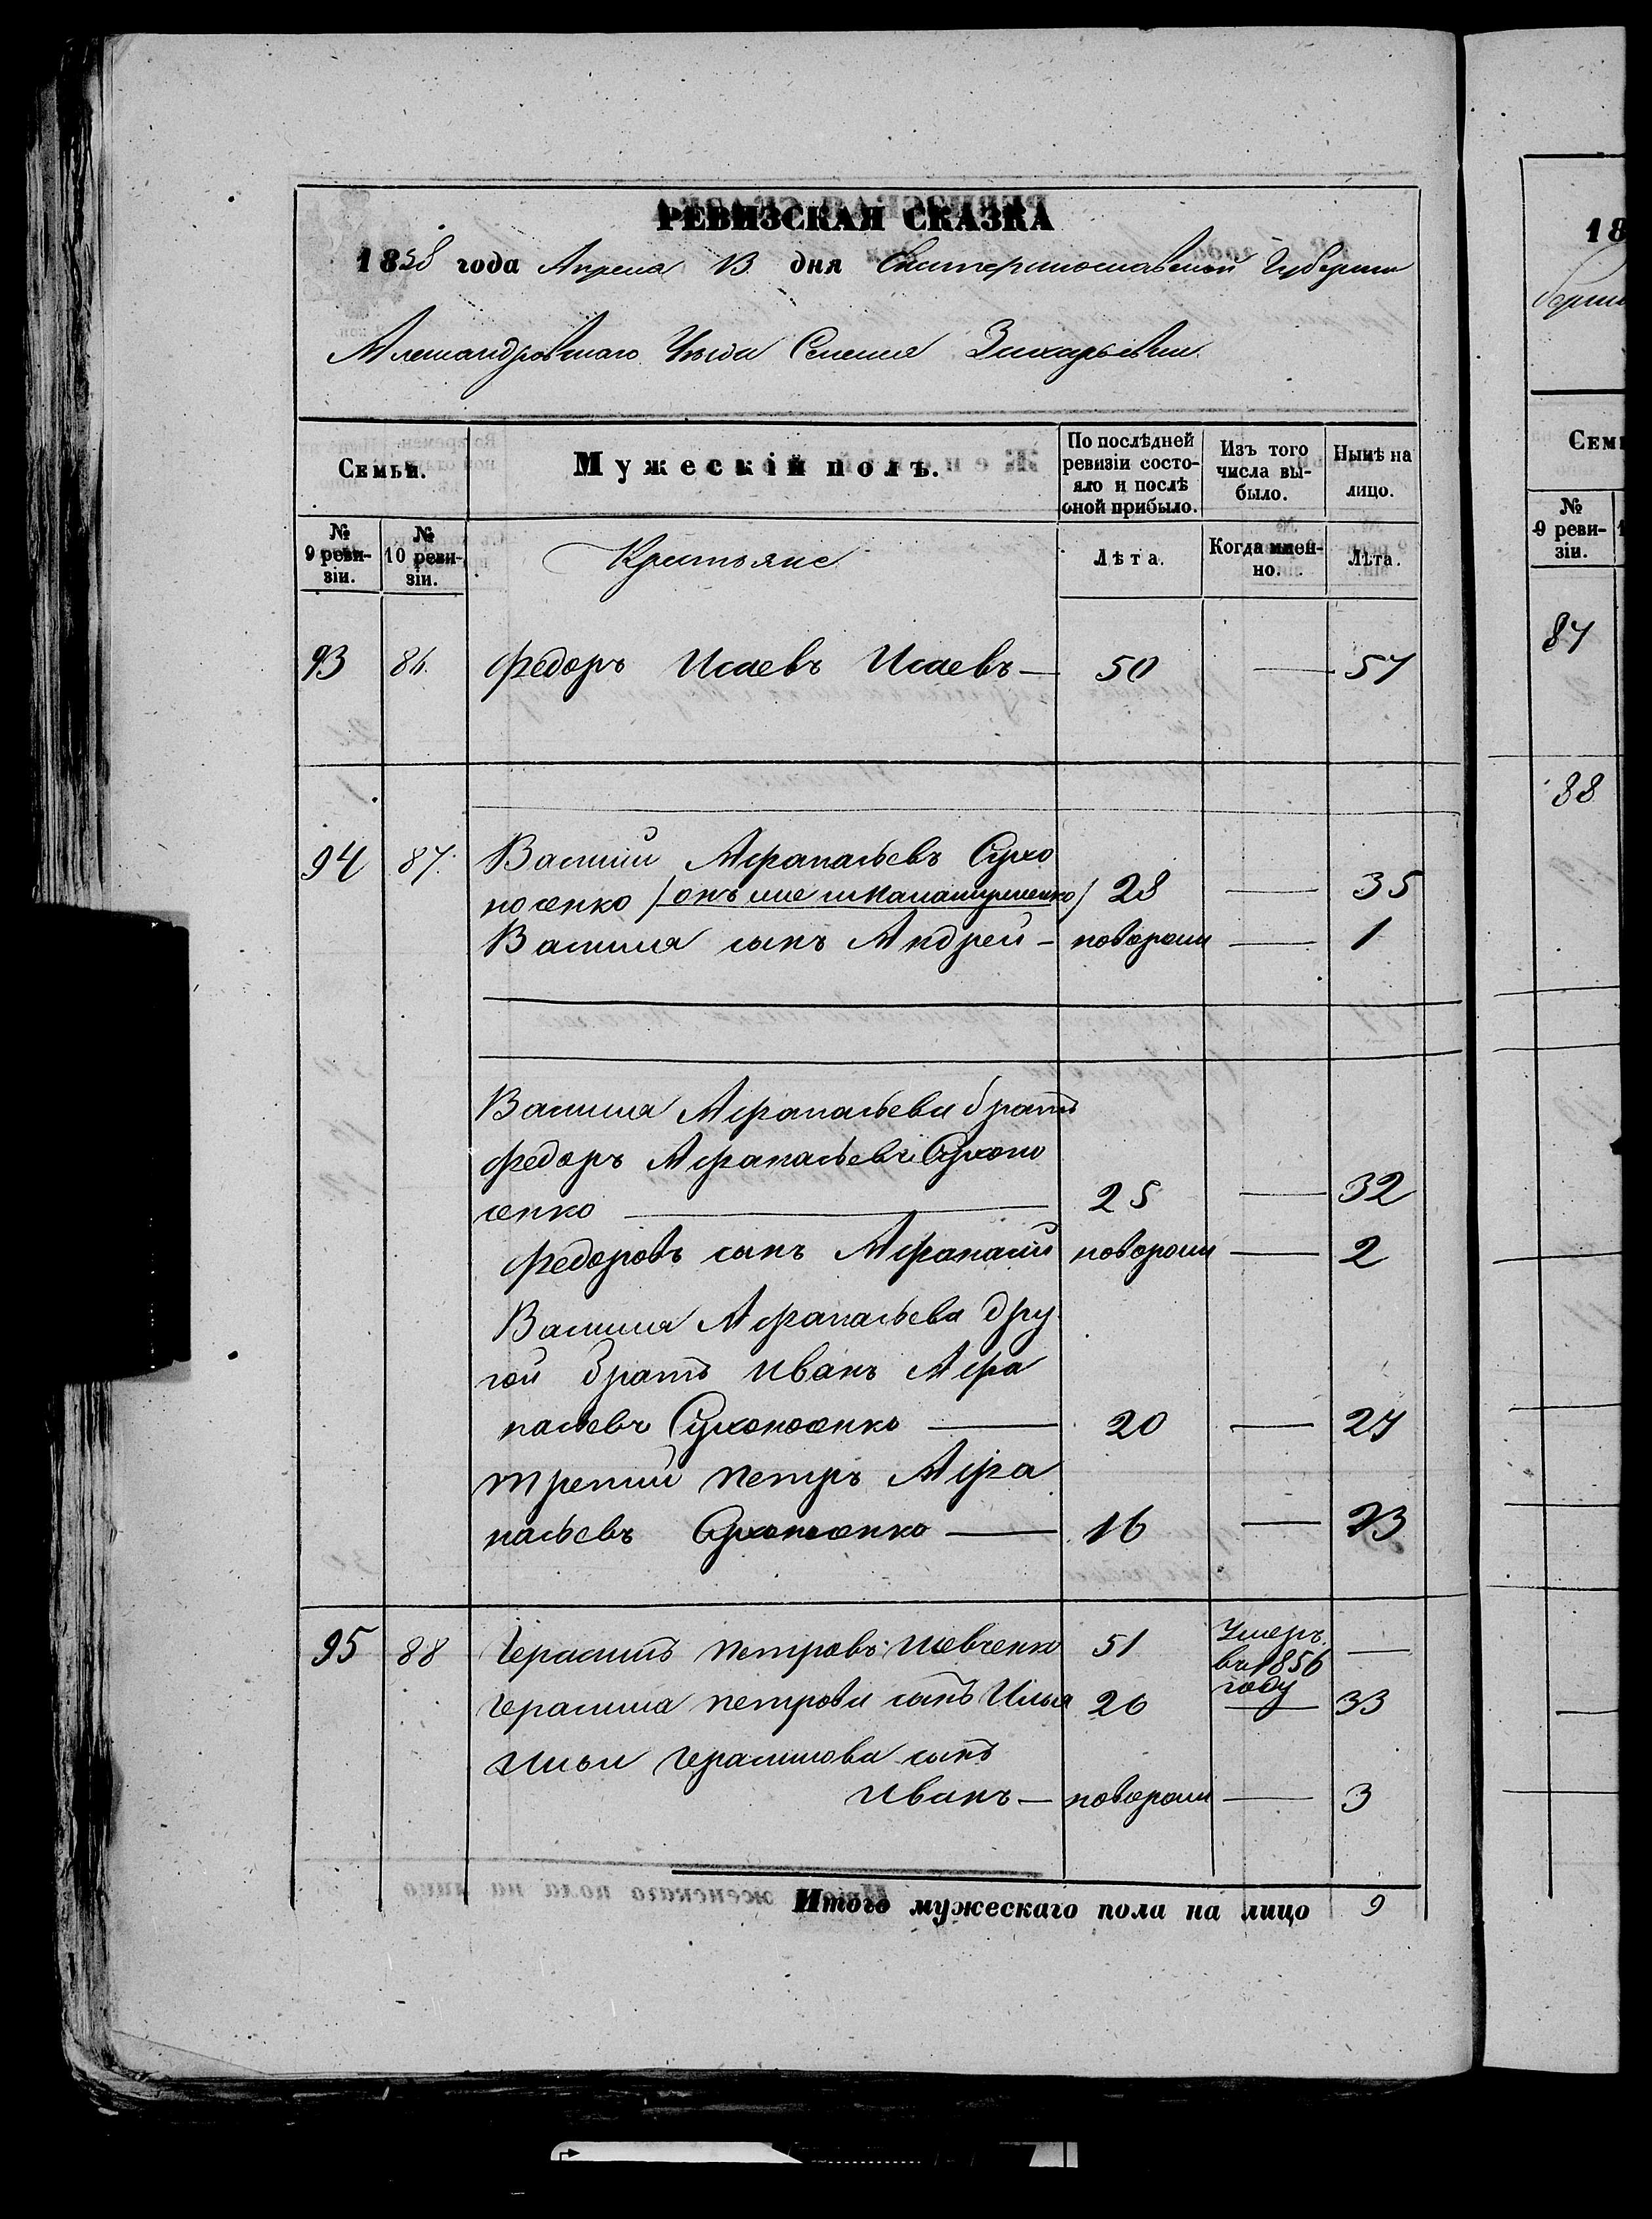 РЕВИЗСКАЯ СКАЗКА
1858 года Апреля 13 дня Екатеринославской Губернии
Александровскаго Уѣзда Селения Захарьевки
Семьи. Мужескій полъ. По послѣдней ревизіи состояло и послѣ оной прибыло. Изъ того числа выбыло. Нынѣ на лицо.
№ 9 ревизіи. № 10 ревизіи. Крестьяне Лѣта. Когда именно. Лѣта.
93 86. Федоръ Исаевъ Исаевъ — 50 — 57
94 87. Василии Афанасьевъ Сухо
носенко /онъ же и / 28 — 35
Василия сынъ Андреи — новорожд — 1
Василия Афанасьева братъ
Федоръ Афанасьевъ Сухоно
сенко — 25 — 32
Федоровъ сынъ Афанасий новорожд — 2
Василия Афанасьева дру
гой братъ Иванъ Афа
насьевъ Сухоносенко — 20 — 27
третий Петръ Афа
насьевъ Сухоносенко — 16 — 23
95 88 Герасимъ Петровъ Шевченко 51 Умеръ. въ 1856 году —
Герасима Петрова сынъ Илья 26 — 33
Ильи Герасимова сынъ
Иванъ — новорожд — 3
Итого мужескаго пола на лицо 9
18
Семь
№ 9 ревизіи.
87
88